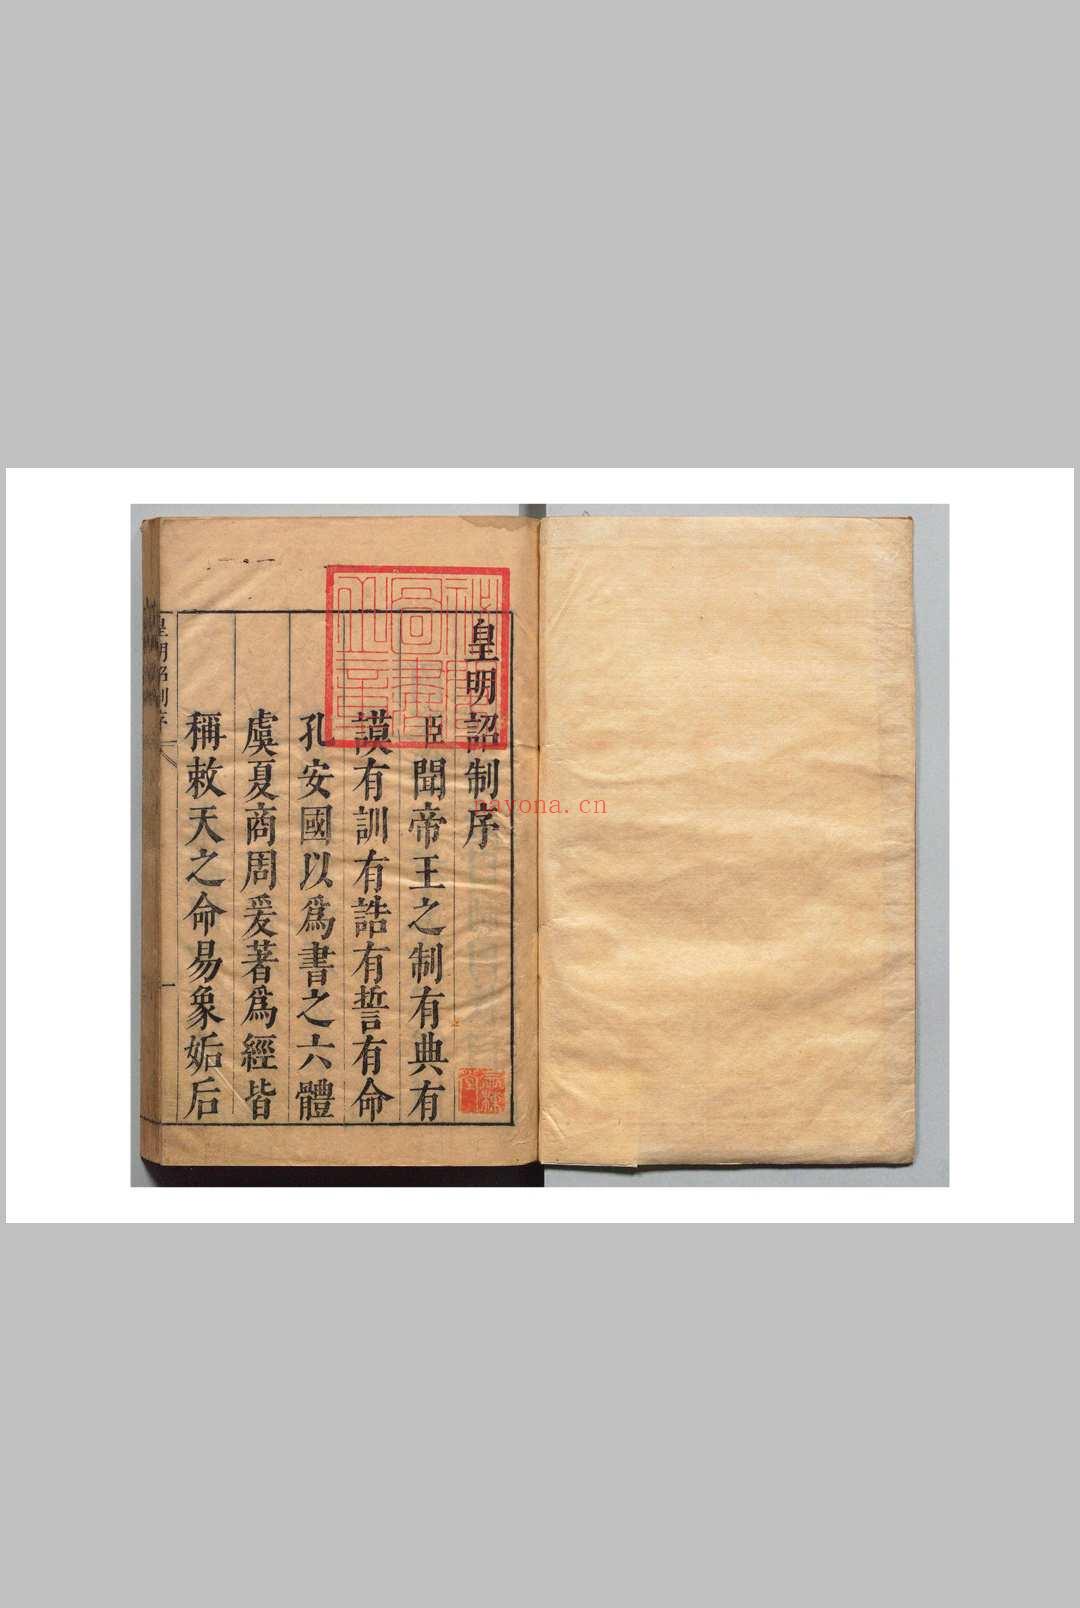 皇明詔制序
臣聞帝王之制有典有
謨有訓有誥有誓有命
孔安國以爲書之六體
虞夏商周爰著爲經皆
稱敕天之命易象姤后
皇明詔制序
一
nayona.cn